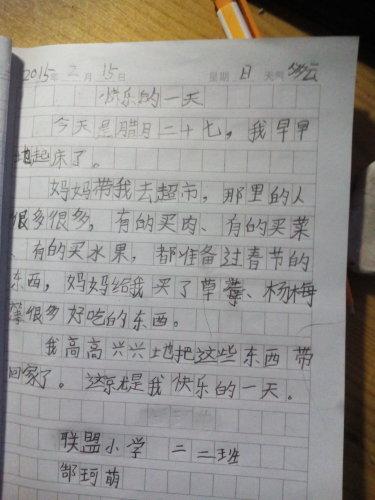 2015年 2月 15日 星期 日 天气 多云
快乐的一天
今天是腊月二十七，我早早
地起床了。
妈妈带我去超市，那里的人
很多很多，有的买肉、有的买菜
、有的买水果，都准备过春节的
东西，妈妈给我买了草莓、杨梅
等很多好吃的东西。
我高高兴兴地把这些东西带
回家了。这就是我快乐的一天。
联盟小学 二 二班
郜珂萌